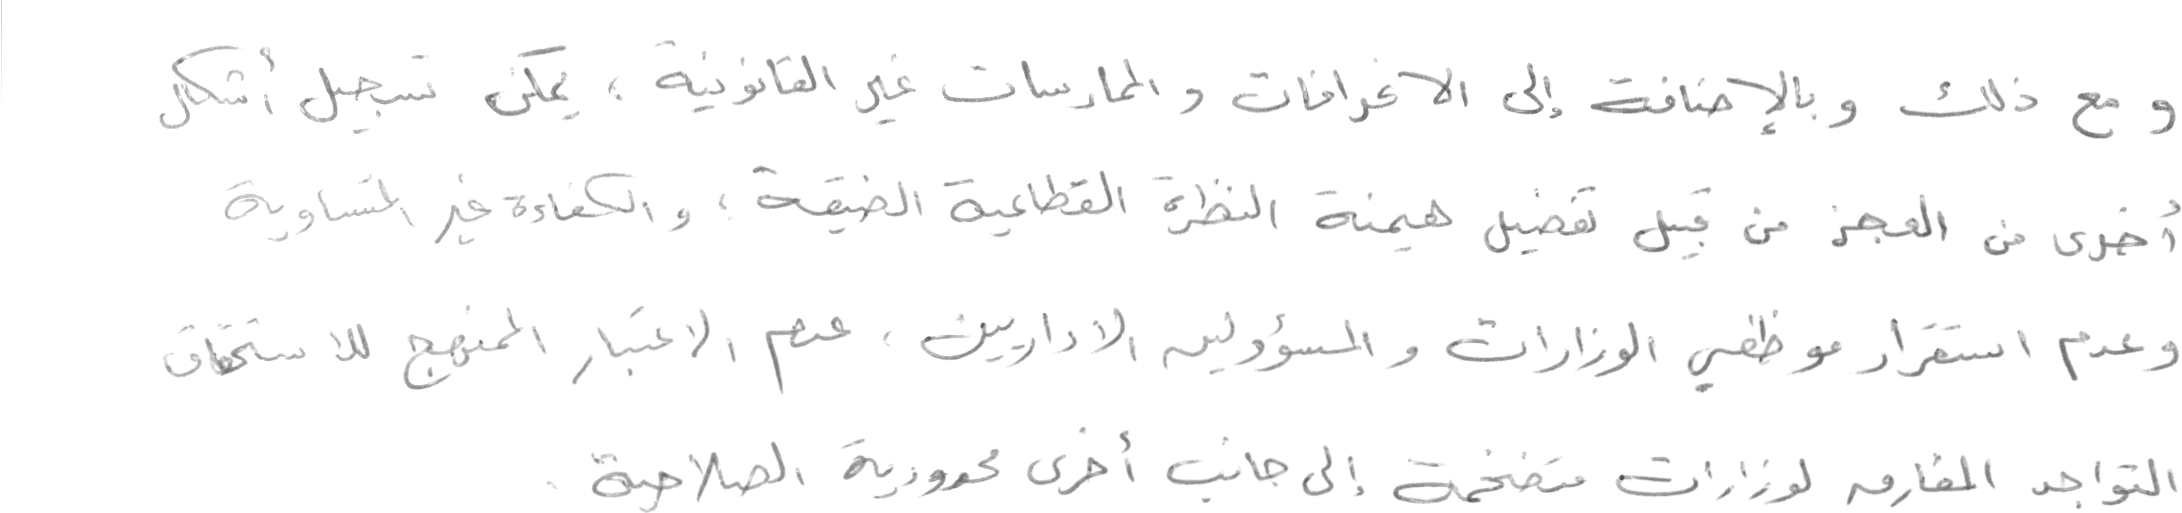 و مع ذلك وبالإضافة إلى الانحرافات والممارسات غير القانونية ، يمكن تسجيل أشكال
أخرى من العجز من قبيل تفضيل هيمنة النظرة القطاعية الضيقة ؛ والكفاءة غير المتساوية
وعدم استقرار موظفي الوزارات والمسؤولين الاداريين ، عدم الاعتبار الممنهج للاستحقاق
التواجد المفارق لوزارات متضخمة إلى جانب أخرى محدودية الصلاحية .